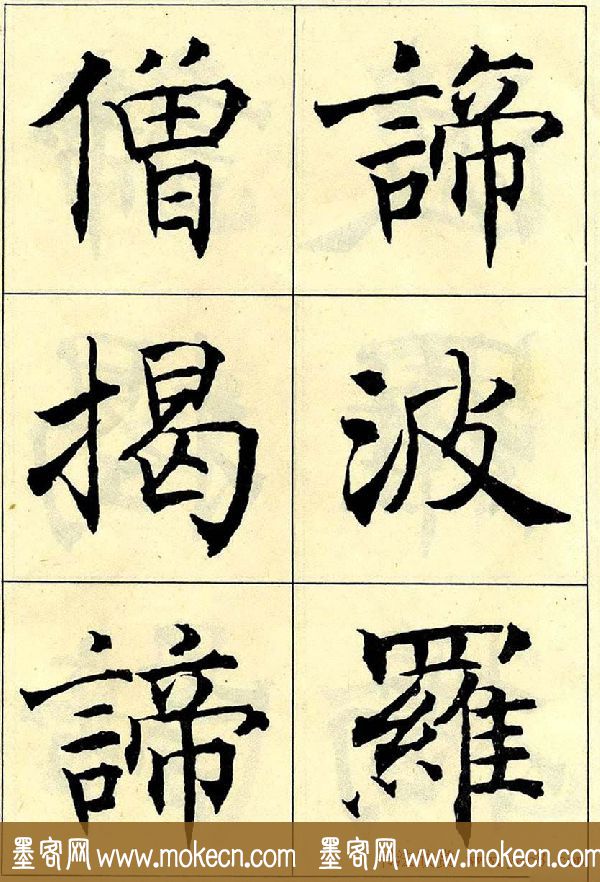 諦波羅
僧揭諦
墨客网 www.mokecn.com 墨客网 www.mokecn.com